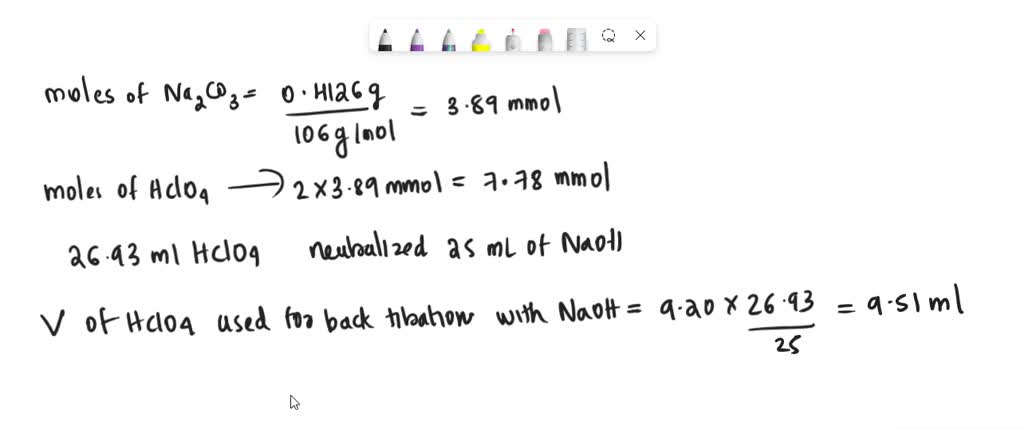 moles of Na2CO3 = 0.4126g / 106 g/mol = 3.89 mmol
moles of HClO4 → 2 × 3.89 mmol = 7.78 mmol
26.93 ml HClO4 neutralized 25 mL of NaOH
V of HClO4 used for back titration with NaOH = 9.20 × 26.93 / 25 = 9.51 ml